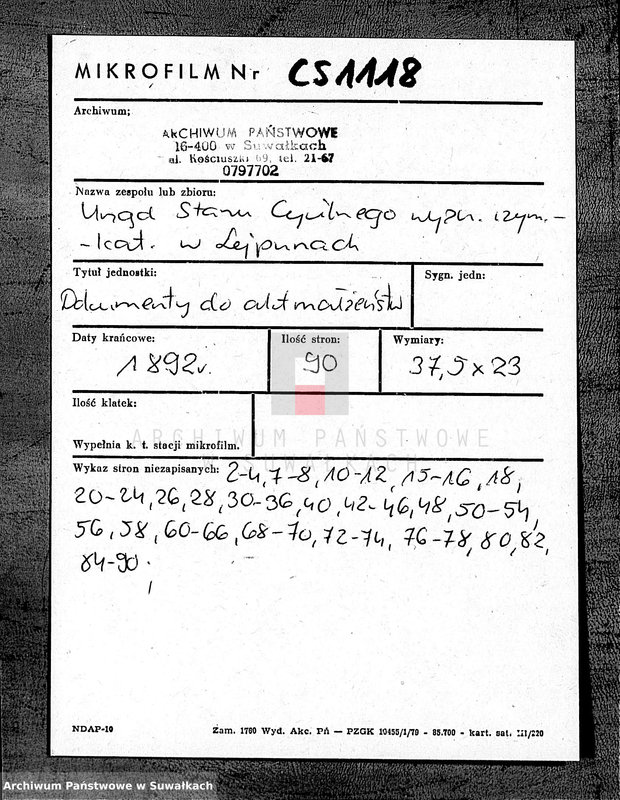 MIKROFILM Nr CS1118
Archiwum;
ARCHIWUM PAŃSTWOWE
16-400 w Suwałkach
ul. Kościuszki 69, tel. 21-67
0797702
Nazwa zespołu lub zbioru:
Urząd Stanu Cywilnego wyzn. rzym.-
-kat. w Lejpunach
Tytuł jednostki:
Sygn. jedn:
Dokumenty do akt małżeństw
Daty krańcowe:
Ilość stron:
Wymiary:
1892r.
90
37,5 x 23
Ilość klatek:
Wypełnia k. t. stacji mikrofilm.
ARCHIWUM PAŃSTWOWE
W SUWAŁKACH
Wykaz stron niezapisanych: 2-4, 7-8, 10-12, 15-16, 18,
20-24, 26, 28, 30-36, 40, 42-46, 48, 50-54,
56, 58, 60-66, 68-70, 72-74, 76-78, 80, 82,
84-90.
NDAP-10
Zam. 1760 Wyd. Akc. Pń — PZGK 10455/1/79 - 85.700 - kart. sat. III/220
Archiwum Państwowe w Suwałkach